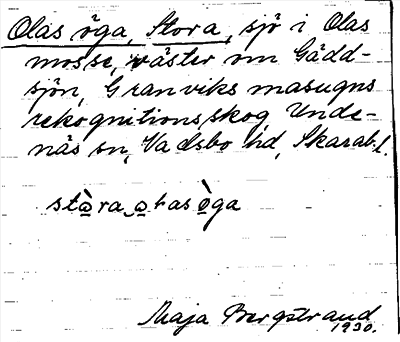 Olas öga, Stora, sjö i Olas
mosse, väster om Gädd-
sjön, Granviks masugns
rekognitionsskog, Unde-
näs sn, Vadsbo hd, Skarab.l.
stò̲ra o̲las ò̲ga
Maja Bergstrand
1930.